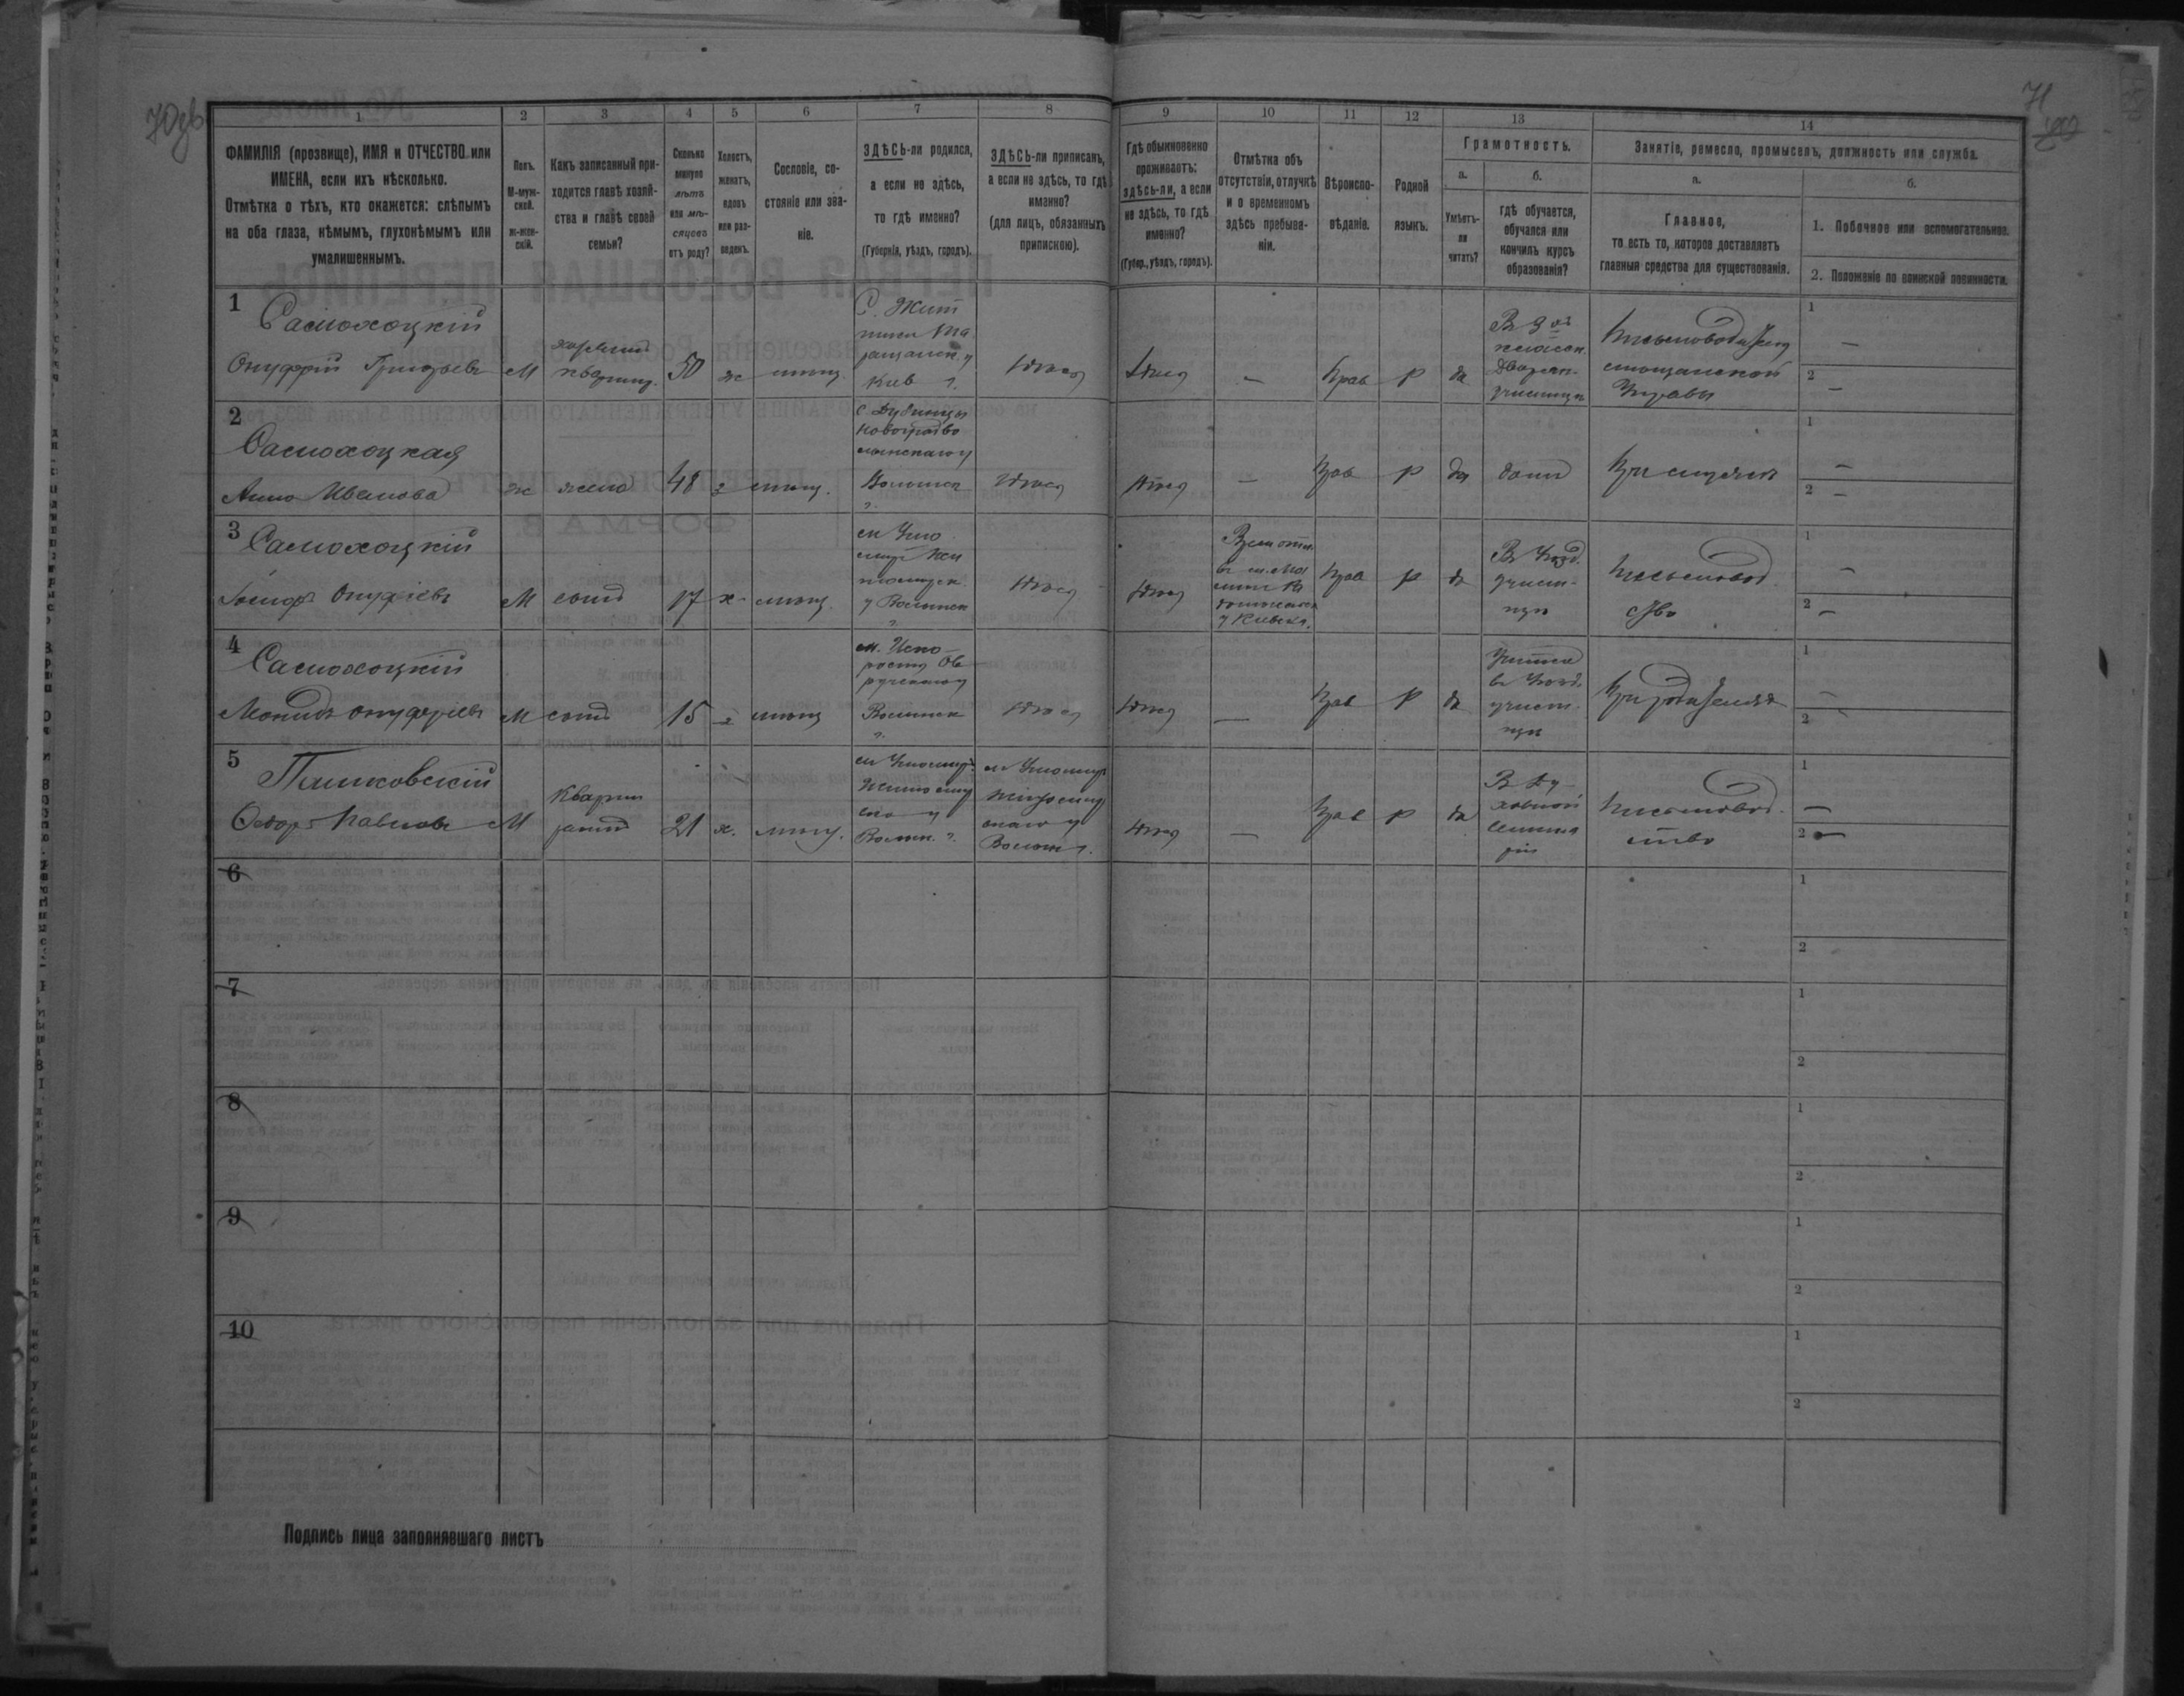 70об
71
1
2
3
4
5
6
7
8
9
10
11
12
13
14
ФАМИЛІЯ (прозвище), ИМЯ и ОТЧЕСТВО или
ИМЕНА, если ихъ нѣсколько.
Отмѣтка о тѣхъ, кто окажется: слѣпымъ
на оба глаза, нѣмымъ, глухонѣмымъ или
умалишеннымъ.
Полъ.
М-муж-
ской.
ж-жен-
скій.
Какъ записанный при-
ходится главѣ хозяй-
ства и главѣ своей
семьи?
Сколько
минуло
лѣтъ
или мѣ-
сяцевъ
отъ роду?
Холостъ,
женатъ,
вдовъ
или раз-
веденъ.
Сословіе, со-
стояніе или зва-
ніе.
ЗДѢСЬ-ли родился,
а если не здѣсь,
то гдѣ именно?
(Губернія, уѣздъ, городъ).
ЗДѢСЬ-ли приписанъ,
а если не здѣсь, то гдѣ
именно?
(для лицъ, обязанныхъ
припискою).
Гдѣ обыкновенно
проживаетъ:
здѣсь-ли, а если
не здѣсь, то гдѣ
именно?
(Губер., уѣздъ, городъ).
Отмѣтка объ
отсутствіи, отлучкѣ
и о временномъ
здѣсь пребыва-
ніи.
Вѣроиспо-
вѣданіе.
Родной
языкъ.
Грамотность.
а.
Умѣетъ-
ли
читать?
б.
гдѣ обучается,
обучался или
кончилъ курсъ
образованія?
Занятіе, ремесло, промыселъ, должность или служба.
а.
Главное,
то есть то, которое доставляетъ
главныя средства для существованія.
б.
1. Побочное или вспомогательное.
2. Положеніе по воинской повинности.
1
Самохоцкій
Онуфрій Григорьевъ
М
хозяинъ
квартир.
50
ж
мѣщ.
Кіев г.
здѣсь
здѣсь
—
прав
р
да
В 3 хъ
класон.
дворян-
училищѣ
письмоводитель
мѣщанской
Управы
1
—
2
—
2
Самохоцкая
Анна Иванова
ж
жена
48
з
мѣщ.
Новоградво
лынскаго у
Волынск
г.
здѣсь
здѣсь
—
прав
р
да
дома
при мужѣ
1
—
2
—
3
Самохоцкій
Онуфріевъ
М
сынъ
17
х
мѣщ.
у Волынск
г.
здѣсь
здѣсь
у Кіевск.
прав
р
да
В Уѣзд.
учили-
щѣ
письмовод
ство
1
—
2
—
4
Самохоцкій
Леонидъ Онуфріевъ
М
сынъ
15
х
мѣщ
м. Иско-
рость Ов
ручскаго у
Волынск
г.
здѣсь
здѣсь
—
прав
р
да
Учится
въ Уѣзд.
учили-
щѣ
при родителях
1
—
2
—
5
Пашковскій
Ѳедоръ Павловъ
М
Кварти
рантъ
21
х.
мѣщ.
Житомир
скаго у
Волын. г.
Житомир
скаго у
Волын г.
здѣсь
—
прав
р
да
В Ду-
ховной
Семина
ріи
письмовод.
ство
1
—
2
—
6
1
2
7
1
2
8
1
2
9
1
2
10
1
2
Подпись лица заполнявшаго листъ